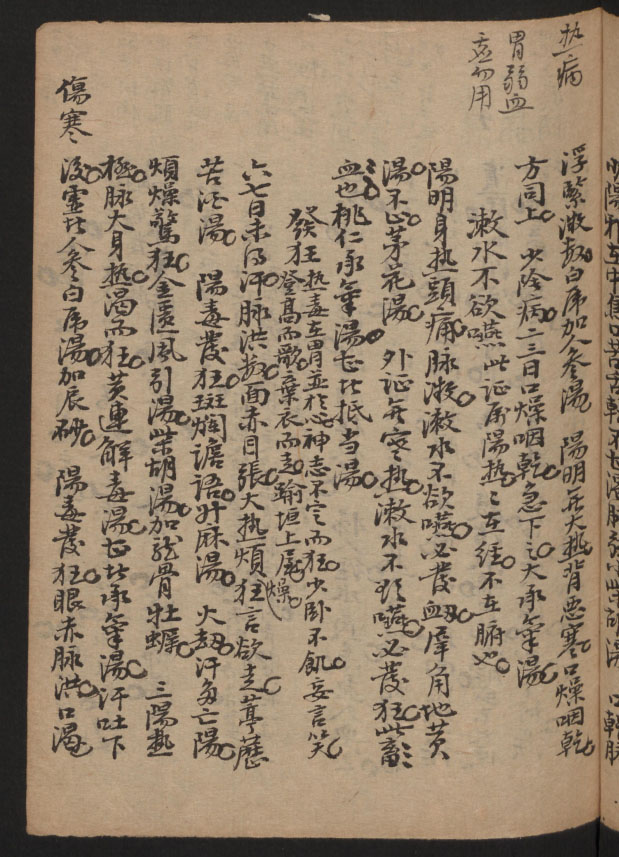 热病
胃弱血
虚勿用
浮緊微数白虎加人参湯　陽明无大热背悪寒口燥咽乾
方同上　少陰病二三日口燥咽乾急下之大承氣湯
漱水不欲嚥此证属陽热〻在经不在腑也
陽明身热頭痛脉微漱水不欲嚥必發衂犀角地黄
湯不止茅花湯　外证无寒热漱水不欲嚥必發狂此畜
血也桃仁承氣湯甚者抵当湯
發狂热毒在胃並於心神志不定而狂少卧不飢妄言笑
登高而歌棄衣而走踰垣上屋
六七日未得汗脉洪数面赤目張大热煩燥狂言欲走葶歷
苦酒湯　陽毒發狂斑爛譫語升麻湯　火劫汗多亡陽
煩燥驚狂金匱風引湯柴胡湯加龍骨牡蠣　三陽热
極脉大身热渴而狂黄連解毒湯甚者承氣湯汗吐下
後虚者人参白虎湯加辰砂　陽毒發狂眼赤脉洪口渴
傷寒